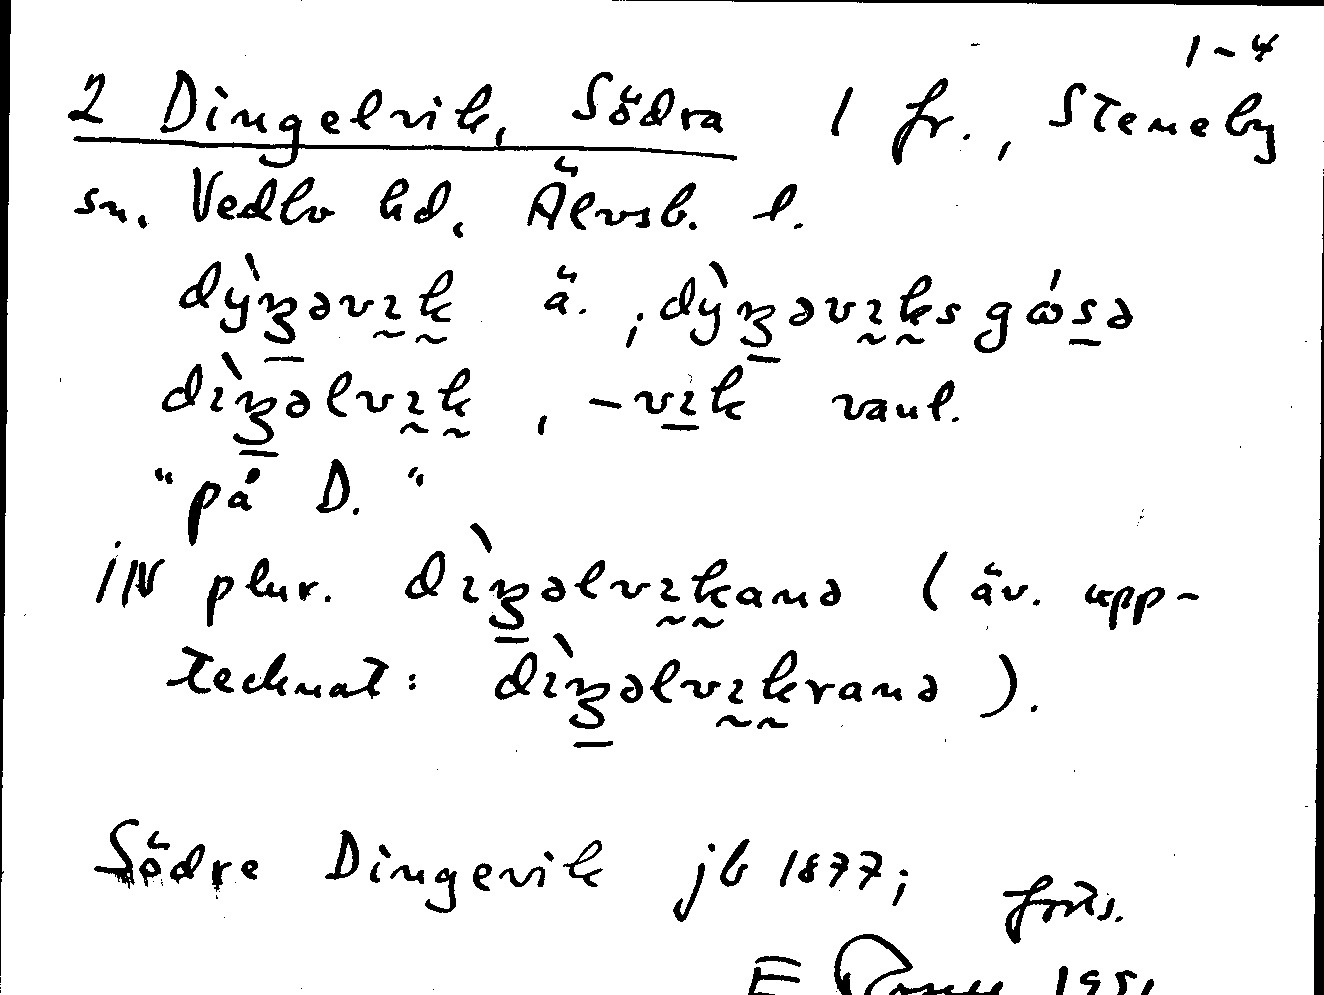 1-4
2 Dingelvik, Södra 1 fr., Steneby
sn. Vedbo hd, Älvsb. l.
dỳŋəvɪk ä., dỳŋəvɪks gɷ́sə
dɪ̀ŋəlvɪk, -vɪk vanl.
"på D."
iN plur. dɪ̀ŋəlvɪkanə (äv. upp-
tecknat: dɪ̀ŋəlvɪkranə).
Södre Dingevik jb 1877; forts.
E 1951